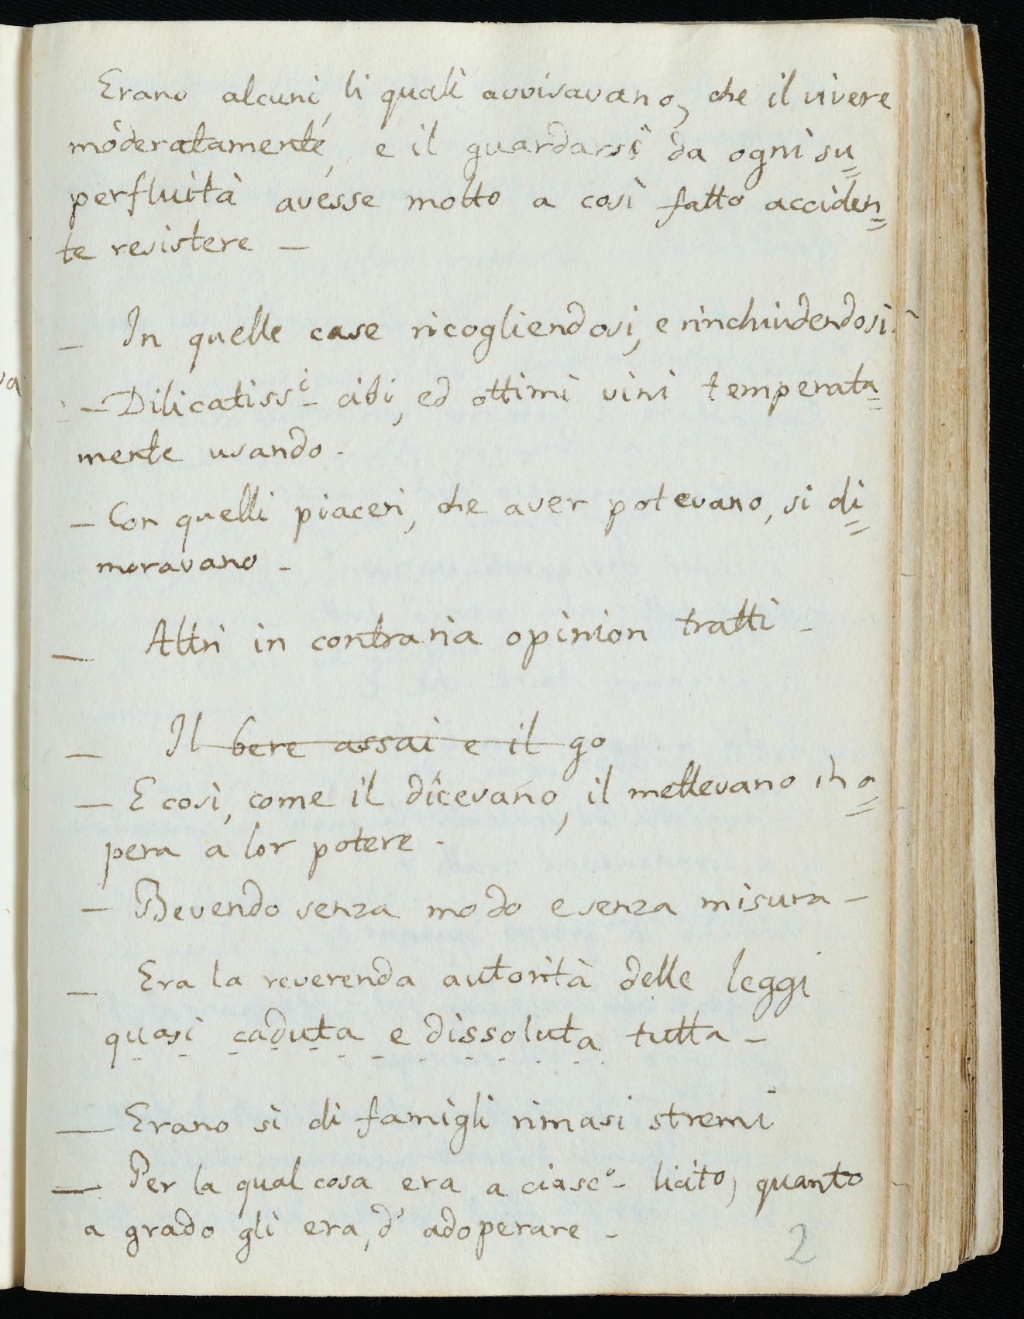 Erano alcuni, li quali avvisavano, che il vivere
moderatamente, e il guardarsi da ogni su=
perfluità avesse molto a così fatto acciden=
te resistere —
— In quelle case ricogliendosi, e rinchiudendosi.
— Dilicatiss.i cibi, ed ottimi vini temperata=
mente usando -
— Con quelli piaceri, che aver potevano, si di=
moravano -
— Altri in contraria opinion tratti -
— Il bere assai e il go
— E così, come il dicevano, il mettevano in o=
pera a lor potere -
— Bevendo senza modo e senza misura —
— Era la reverenda autorità delle leggi
quasi caduta e dissoluta tutta —
— Erano sì di famigli rimasi stremi
— Per la qual cosa era a ciasc.o licito, quanto
a grado gli era, d'adoperare -
2